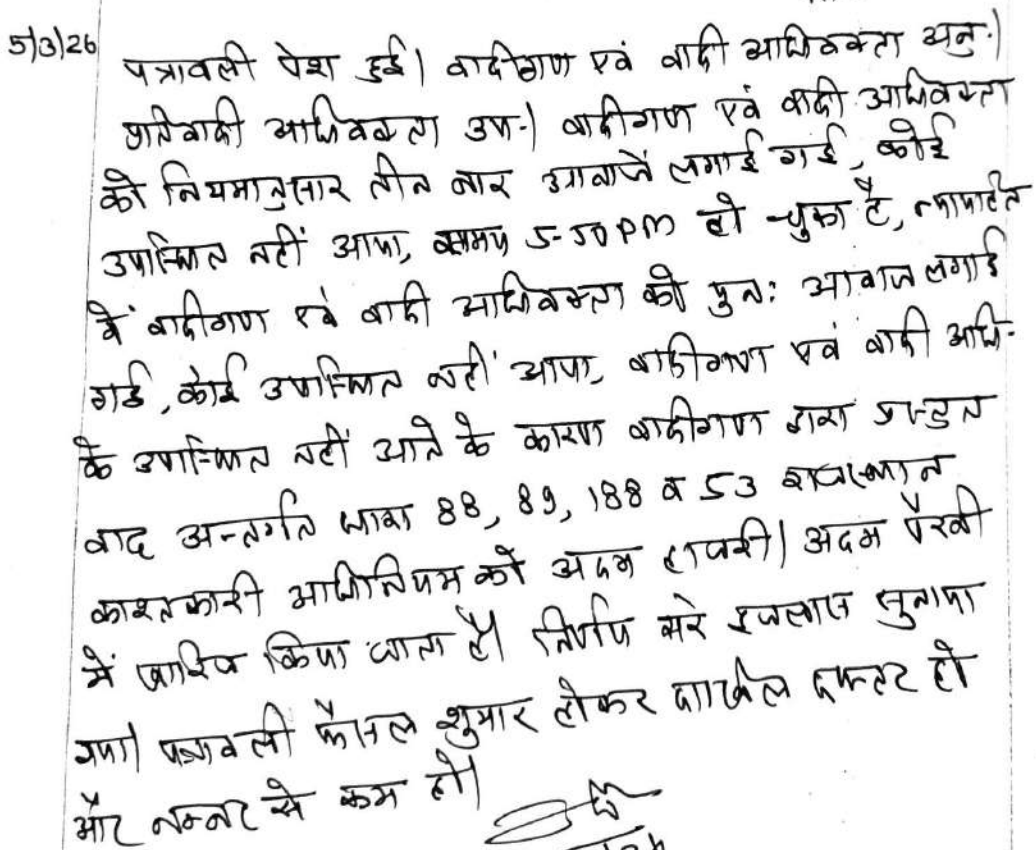 5/3/26
पत्रावली पेश हुई। वादीगण एवं वादी अधिवक्ता अनु.।
प्रतिवादी अधिवक्ता उप.। वादीगण एवं वादी अधिवक्ता
को नियमानुसार तीन बार आवाजें लगाई गई, कोई
उपस्थित नहीं आया, समय 5-50 PM हो चुका है, न्यायहित
में वादीगण एवं वादी अधिवक्ता की पुनः आवाज लगाई
गई, कोई उपस्थित नहीं आया, वादीगण एवं वादी अधि.
के उपस्थित नहीं आने के कारण वादीगण द्वारा प्रस्तुत
वाद अन्तर्गत धारा 88, 89, 188 व 53 राजस्थान
काश्तकारी अधिनियम को अदम हाजरी/अदम पैरवी
में खारिज किया जाता है। निर्णय सरे इजलास सुनाया
गया। पत्रावली फैसल शुमार होकर दाखिल दफ्तर हो
और नम्बर से कम हो।